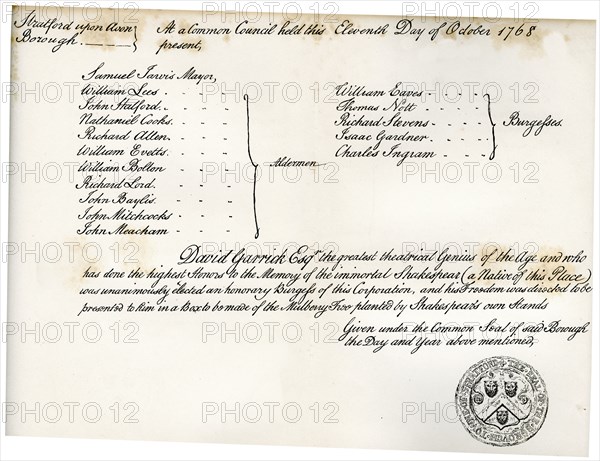 Stratford upon Avon
Borough.
At a Common Council held this Eleventh Day of October 1768
present,
Samuel Jarvis Mayor,
William Lees
John Stalford
Nathaniel Cooks
Richard Allen
William Evetts
William Bolton
Richard Lord
John Baylis
John Mitchcocks
John Meacham
Aldermen
William Eaves
Thomas Nott
Richard Stevens
Isaac Gardner
Charles Ingram
Burgeſses.
David Garrick Esqr. the greatest theatrical Genius of the Age and who
has done the highest Honors to the Memory of the immortal Shakespear (a Native of this Place)
was unanimously elected an honorary Burgeſs of this Corporation, and his Freedom was directed to be
presented to him in a Box to be made of the Mulbery Tree planted by Shakespear's own Hands
Given under the Common Seal of said Borough
the Day and Year above mentioned,
PHOTO 12